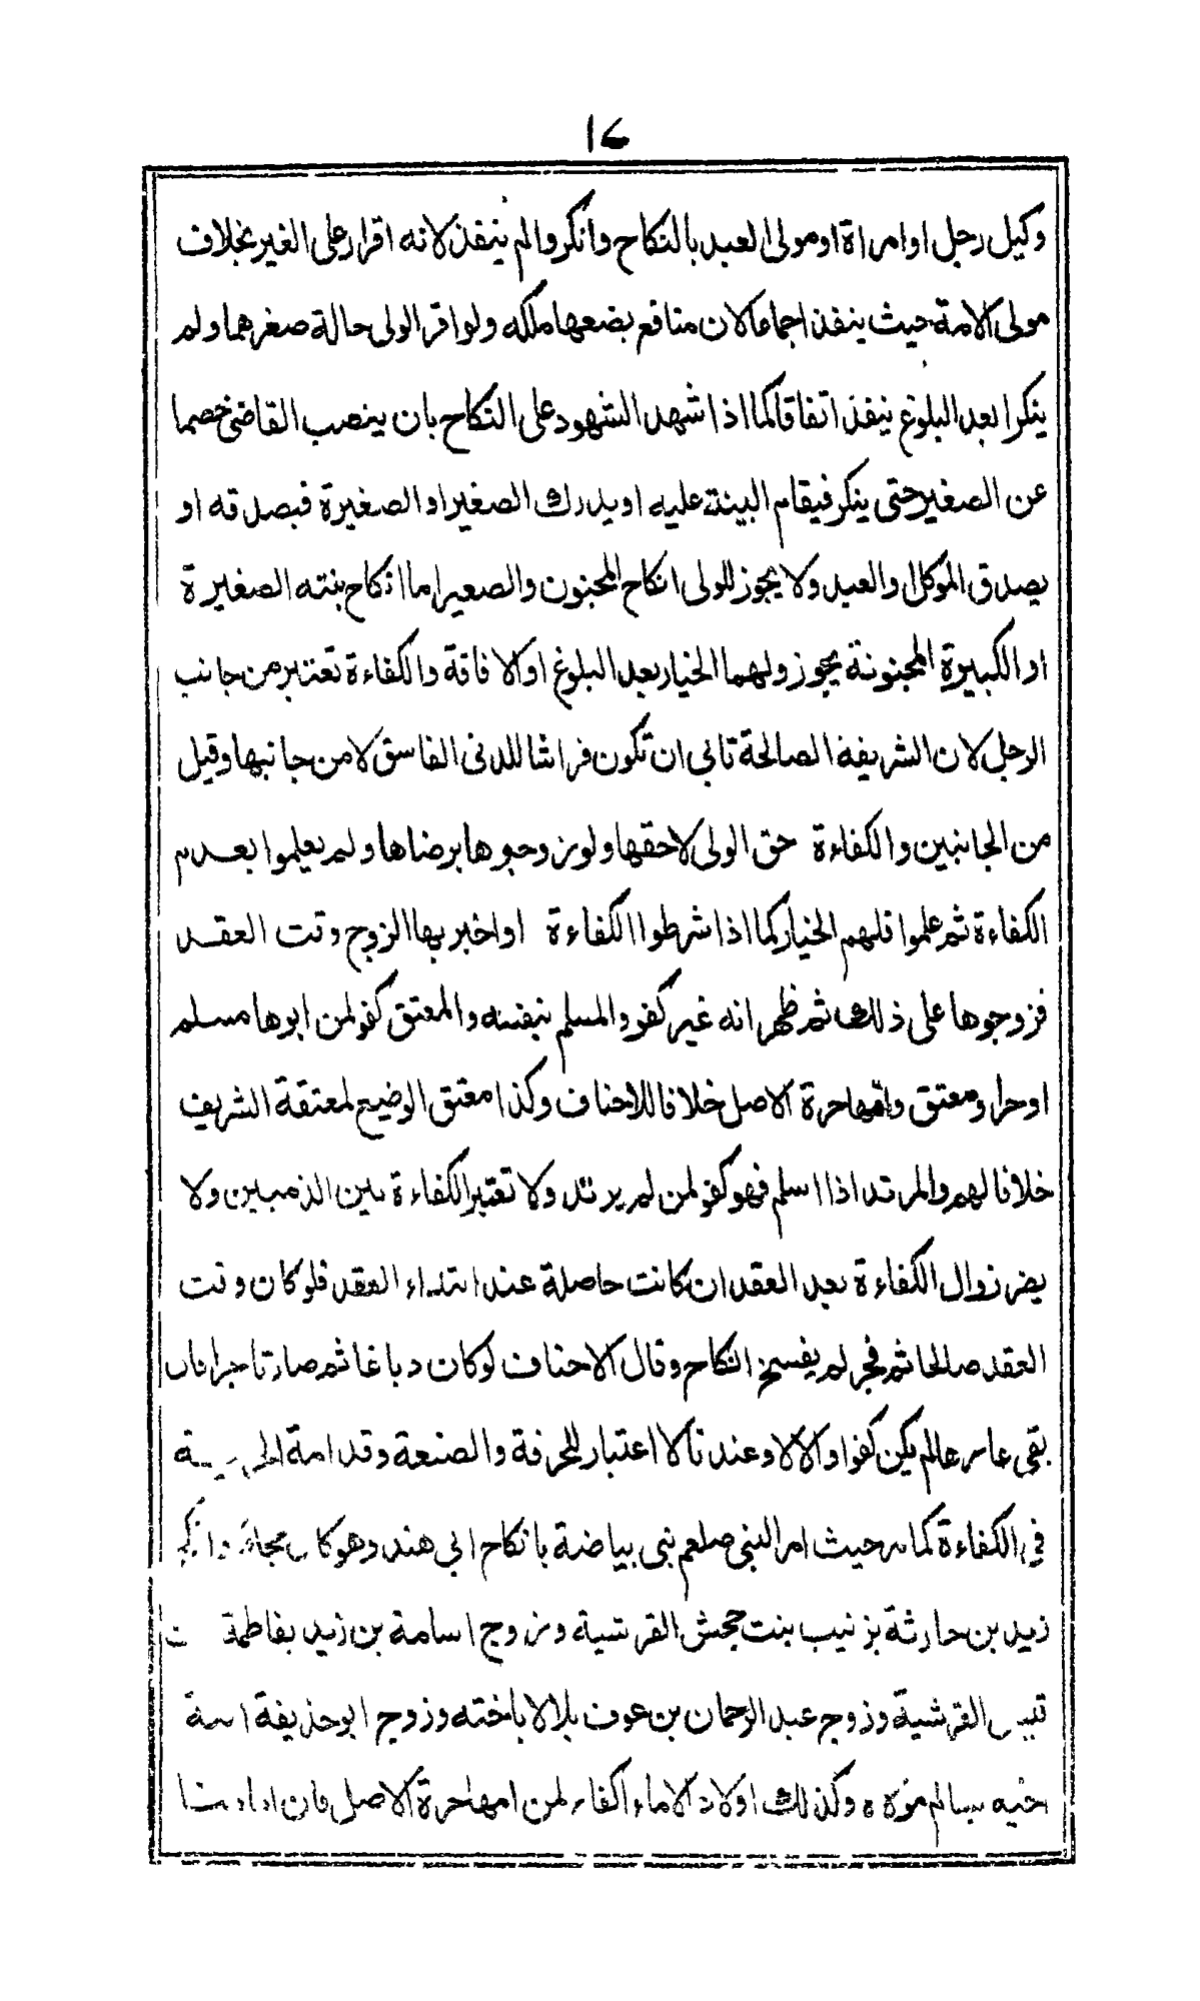 ١٤
وكيل رجل او امراة او مولى العبد بالنكاح وانكروا لم ينفذ لانه اقرار على الغير بخلاف
مولى الامة حيث ينفذ اجماعا لان منافع بضعها ملكه ولو اقر الولى حالة صغرهما ولم
ينكرا بعد البلوغ ينفذ اتفاقا كما اذا شهد الشهود على النكاح بان ينصب القاضى خصما
عن الصغير حتى ينكر فيقام البينة عليه او يدرك الصغير او الصغيرة فيصدقه او
يصدق الموكل والعبد ولا يجوز للولى انكاح المجنون والصغير اما انكاح بنته الصغيرة
او الكبيرة المجنونة يجوز ولهما الخيار بعد البلوغ او الافاقة والكفاءة تعتبر من جانب
الرجل لان الشريفة الصالحة تابى ان تكون فراشا للدنى الفاسق لا من جانبها وقيل
من الجانبين والكفاءة حق الولى لاحقها ولو زوجوها برضاها ولم يعلموا بعدم
الكفاءة ثم علموا فلهم الخيار كما اذا شرطوا الكفاءة او اخبر بها الزوج وقت العقد
فزوجوها على ذلك ثم ظهر انه غير كفو والمسلم بنفسه والمعتق كفو لمن ابوها مسلم
او حر او معتق وامها حرة الاصل خلافا للاحناف وكذا معتق الوضيع لمعتقة الشريف
خلافا لهم والمرتد اذا اسلم فهو كفو لمن لم يرتد ولا تعتبر الكفاءة بين الذميين ولا
يضر زوال الكفاءة بعد العقد ان كانت حاصلة عند ابتداء العقد فلو كان وقت
العقد صالحا ثم فجر لم يفسخ النكاح وقال الاحناف لو كان دباغا ثم صار تاجرا فان
بقى عارها لم يكن كفوا والا لا وعندنا لا اعتبار للحرفة والصنعة وقدامة
فى الكفاءة كما مر حيث امر النبى صلعم بنى بياضة بانكاح ابى هند وهو كان حجاما
زيد بن حارثة بزنيب بنت جحش القرشية وزوج اسامة بن زيد بفاطمة بنت
قيس القرشية وزوج عبد الرحمان بن عوف بلالا باخته وزوج ابو حذيفة ابنة
اخيه سالم مولاه وكذلك اولاد الاماء اكفاء لمن امها حرة الاصل فان